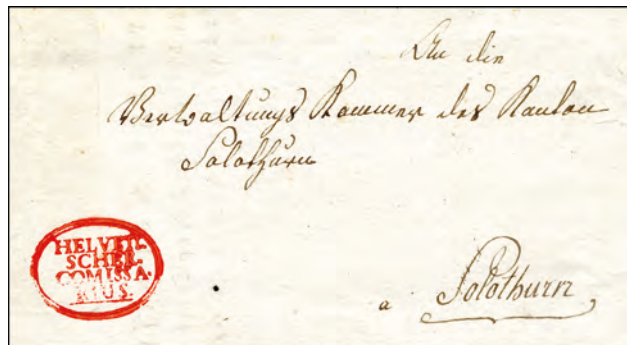 An die
Verwaltungs Kammer des Kanton
Solothurn
HELVETI-
SCHER.
COMISSA-
RIUS.
a Solothurn